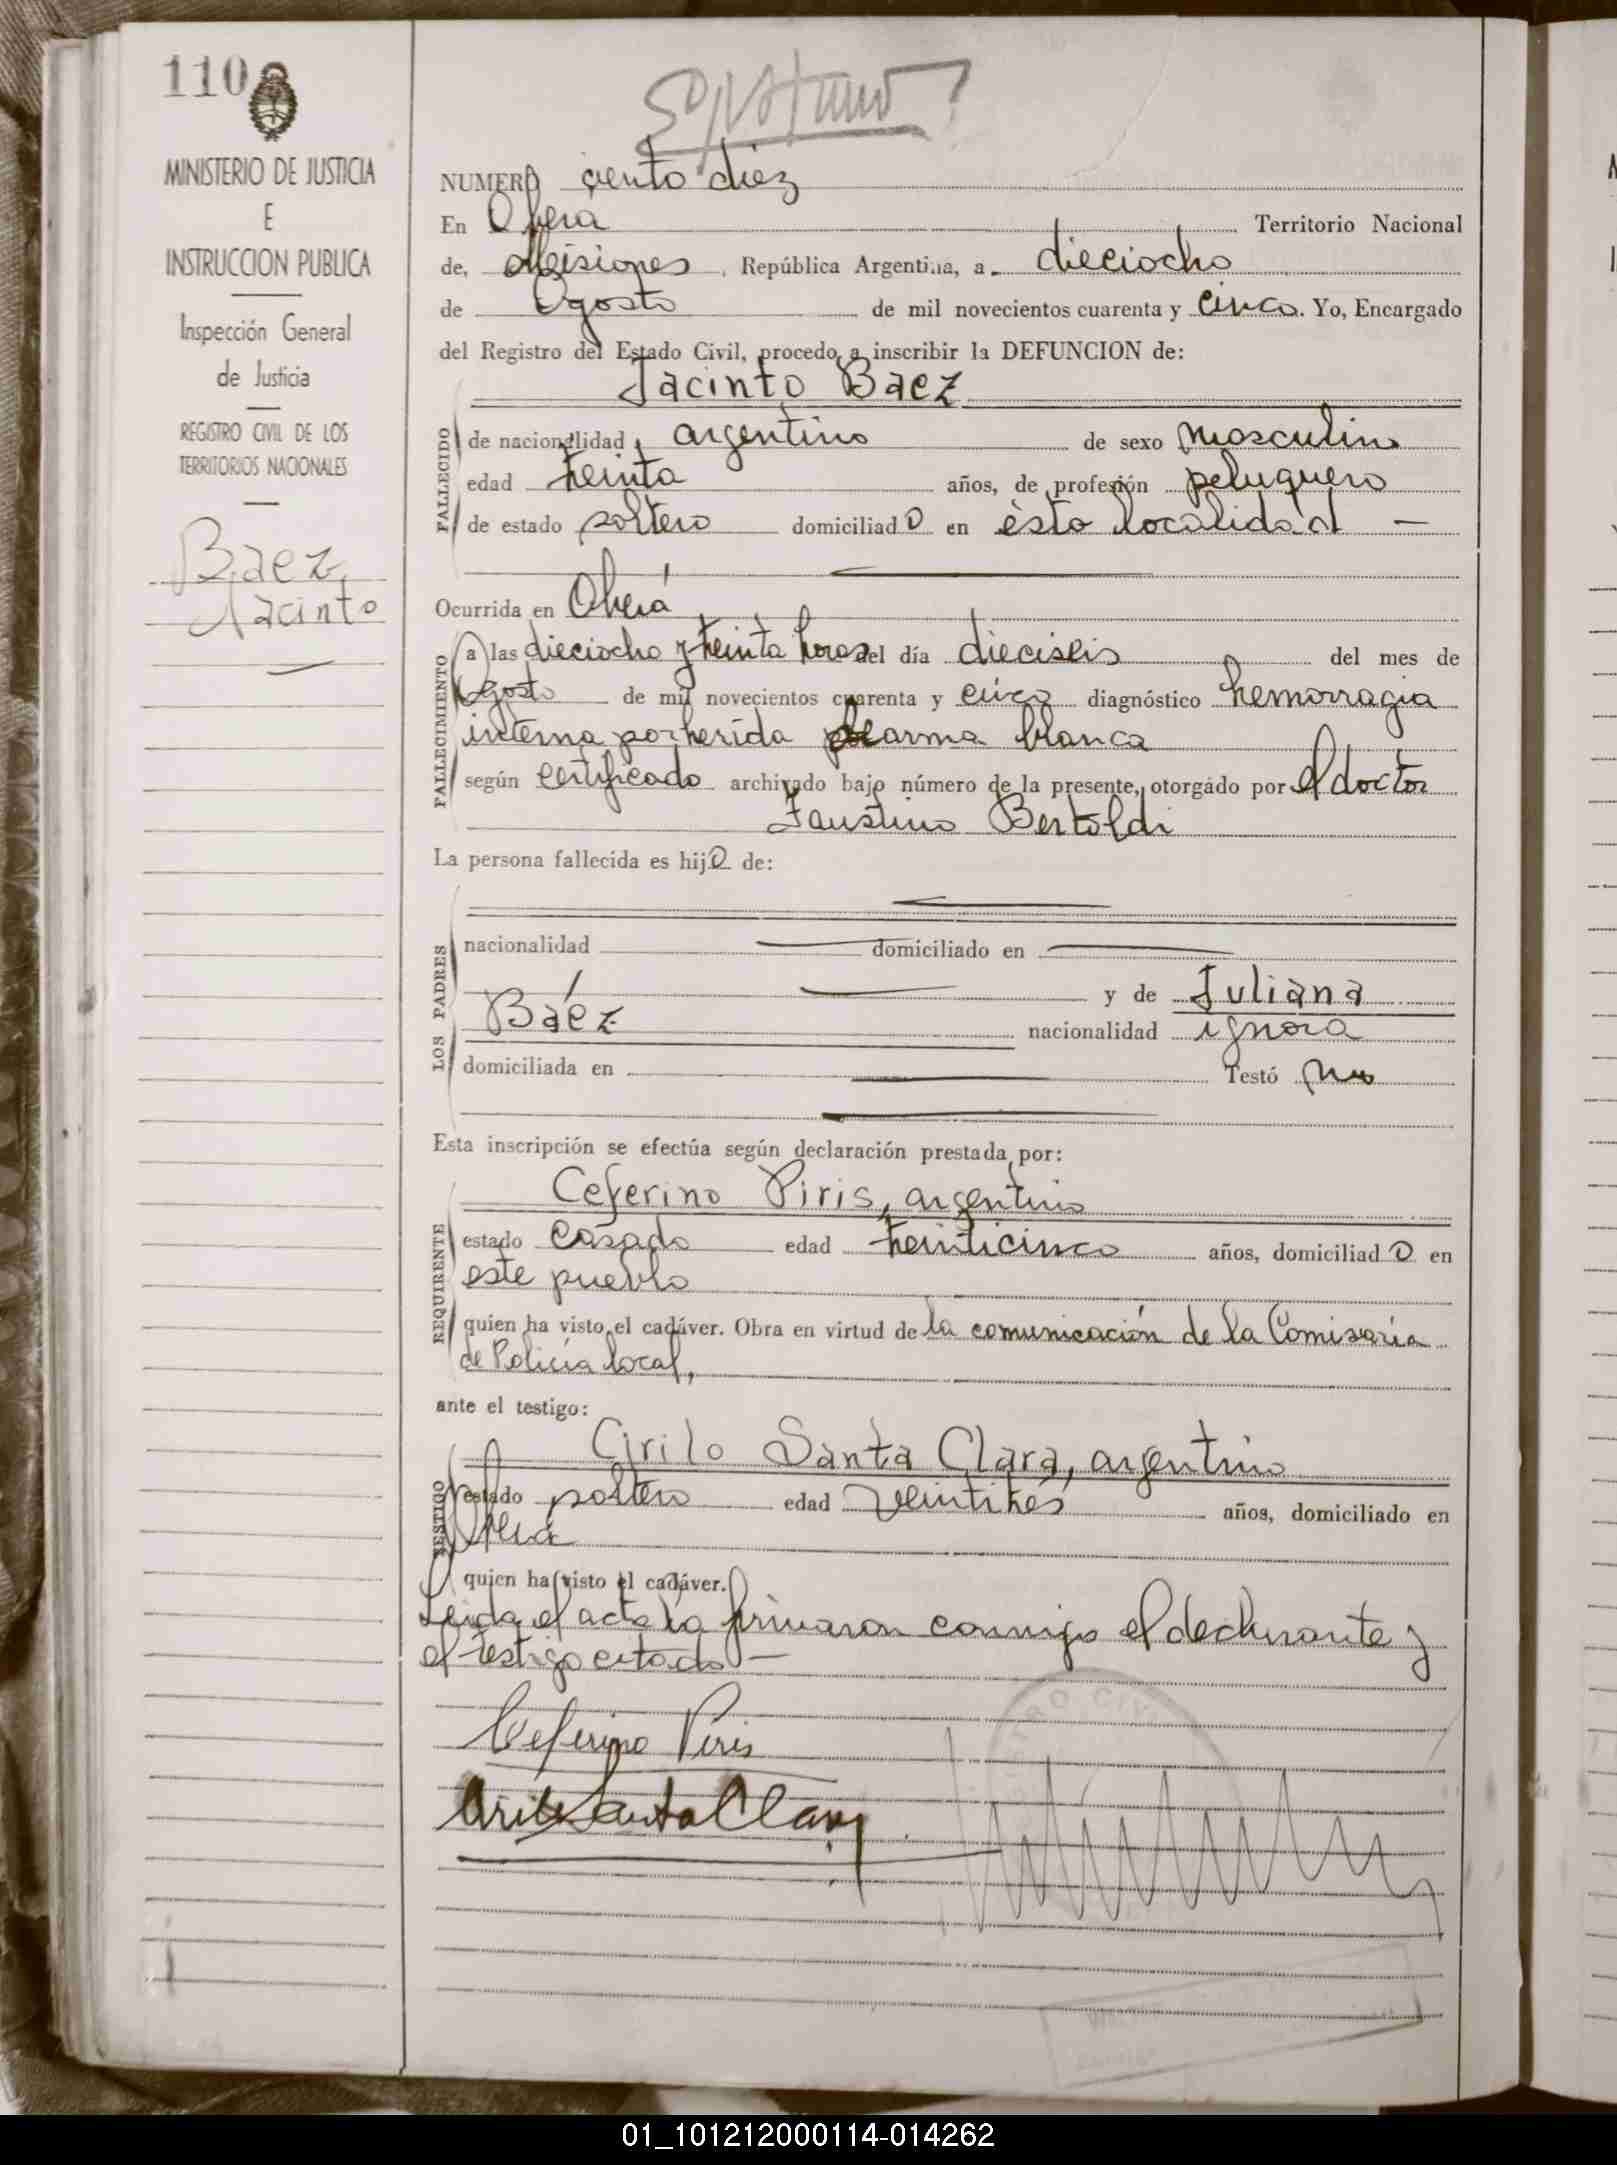 110
MINISTERIO DE JUSTICIA
E
INSTRUCCION PUBLICA
Inspección General
de Justicia
REGISTRO CIVIL DE LOS
TERRITORIOS NACIONALES
Baez,
Jacinto
NUMERO ciento diez
En Obera Territorio Nacional
de, Misiones, República Argentina, a dieciocho
de Agosto de mil novecientos cuarenta y cinco. Yo, Encargado
del Registro del Estado Civil, procedo a inscribir la DEFUNCION de:
Jacinto Baez
FALLECIDO
de nacionalidad argentino de sexo masculino
edad treinta años, de profesión peluquero
de estado soltero domiciliado en ésta localidad —
Ocurrida en Oberá
FALLECIMIENTO
a las dieciocho y treinta horas del día dieciseis del mes de
Agosto de mil novecientos cuarenta y cinco diagnóstico hemorragia
interna por herida de arma blanca
según certificado archivado bajo número de la presente, otorgado por el doctor
Faustino Bertoldi
La persona fallecida es hijo de:
LOS PADRES
nacionalidad — domiciliado en —
— y de Juliana
Báez nacionalidad ignora
domiciliada en — Testó no
Esta inscripción se efectúa según declaración prestada por:
REQUIRENTE
Ceferino Piris, argentino
estado casado edad treinticinco años, domiciliado en
este pueblo
quien ha visto el cadáver. Obra en virtud de la comunicación de la Comisaría
de Policía local,
ante el testigo:
TESTIGO
Cirilo Santa Clara, argentino
estado soltero edad veintitres años, domiciliado en
Oberá
quien ha visto el cadáver.
Leida el acta la firmaron conmigo el declarante y
el testigo citado —
Ceferino Piris
Cirilo Santa Clara
01_101212000114-014262